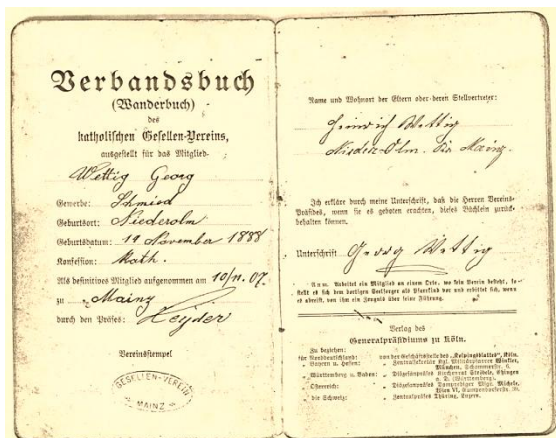 Verbandsbuch
(Wanderbuch)
des
katholischen Gesellen-Vereins,
ausgestellt für das Mitglied
Wettig Georg
Gewerbe: Schmied
Geburtsort: Niederolm
Geburtsdatum: 19 November 1888
Konfession: Kath.
Als definitives Mitglied aufgenommen am 10/11. 07.
zu Mainz
durch den Präses: Heyder
Vereinsstempel
GESELLEN-VEREIN
MAINZ
Name und Wohnort der Eltern oder deren Stellvertreter:
Heinrich Wettig
Nieder-Olm. bei Mainz.
Ich erkläre durch meine Unterschrift, daß die Herren Vereins-
Präsides, wenn sie es geboten erachten, dieses Büchlein zurück-
behalten können.
Unterschrift Georg Wettig
Anm. Arbeitet ein Mitglied an einem Orte, wo kein Verein besteht, so
stellt es sich dem dortigen Seelsorger als Pfarrkind vor und erbittet sich, wenn
es abreist, von ihm ein Zeugnis über seine Führung.
Verlag des
Generalpräsidiums zu Köln.
Zu beziehen:
für Norddeutschland: von der Geschäftsstelle des „Kolpingsblattes“, Köln.
" Bayern u. Hessen: " Zentralsekretär Kgl. Militärpfarrer Winkler,
München, Schommerstr.
" Württemberg u. Baden: " Diözesanpräses Kirchenrat Ströbele, Ehingen
a. D. (Württemberg).
" Österreich: " Diözesanpräses Domprediger Msgr. Michele,
Wien VI, Gumpendorferstr. 39.
" die Schweiz: " Zentralpräses Thüring, Luzern.